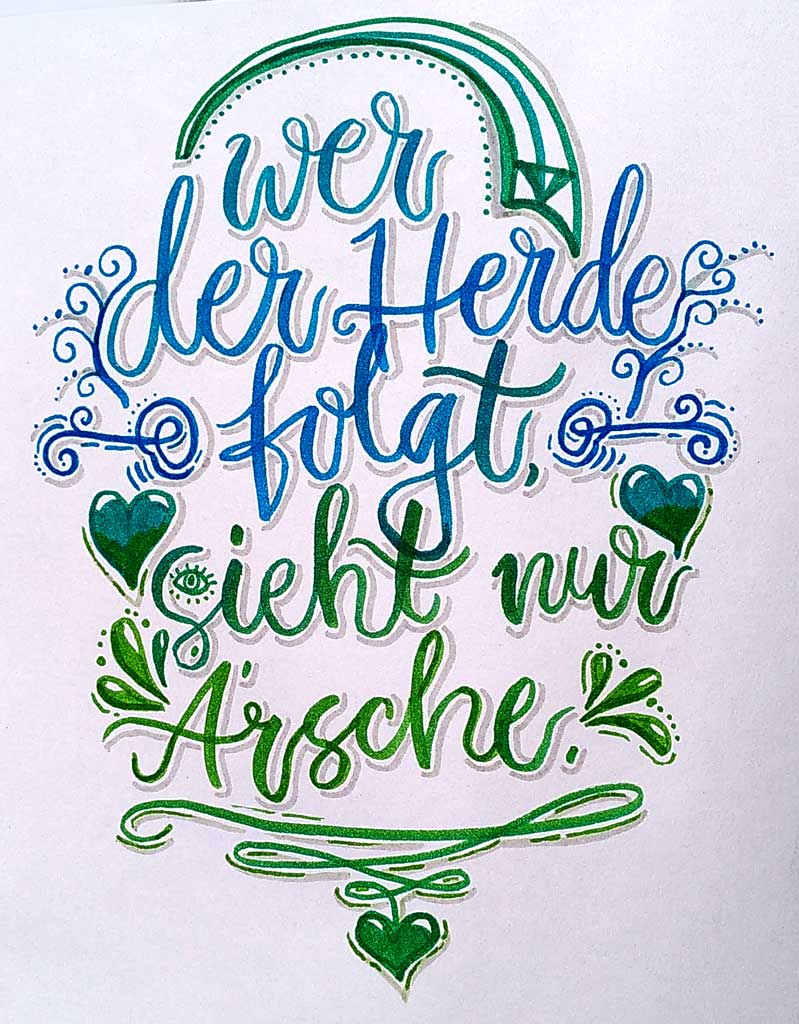 wer
der Herde
folgt,
sieht nur
Ärsche.